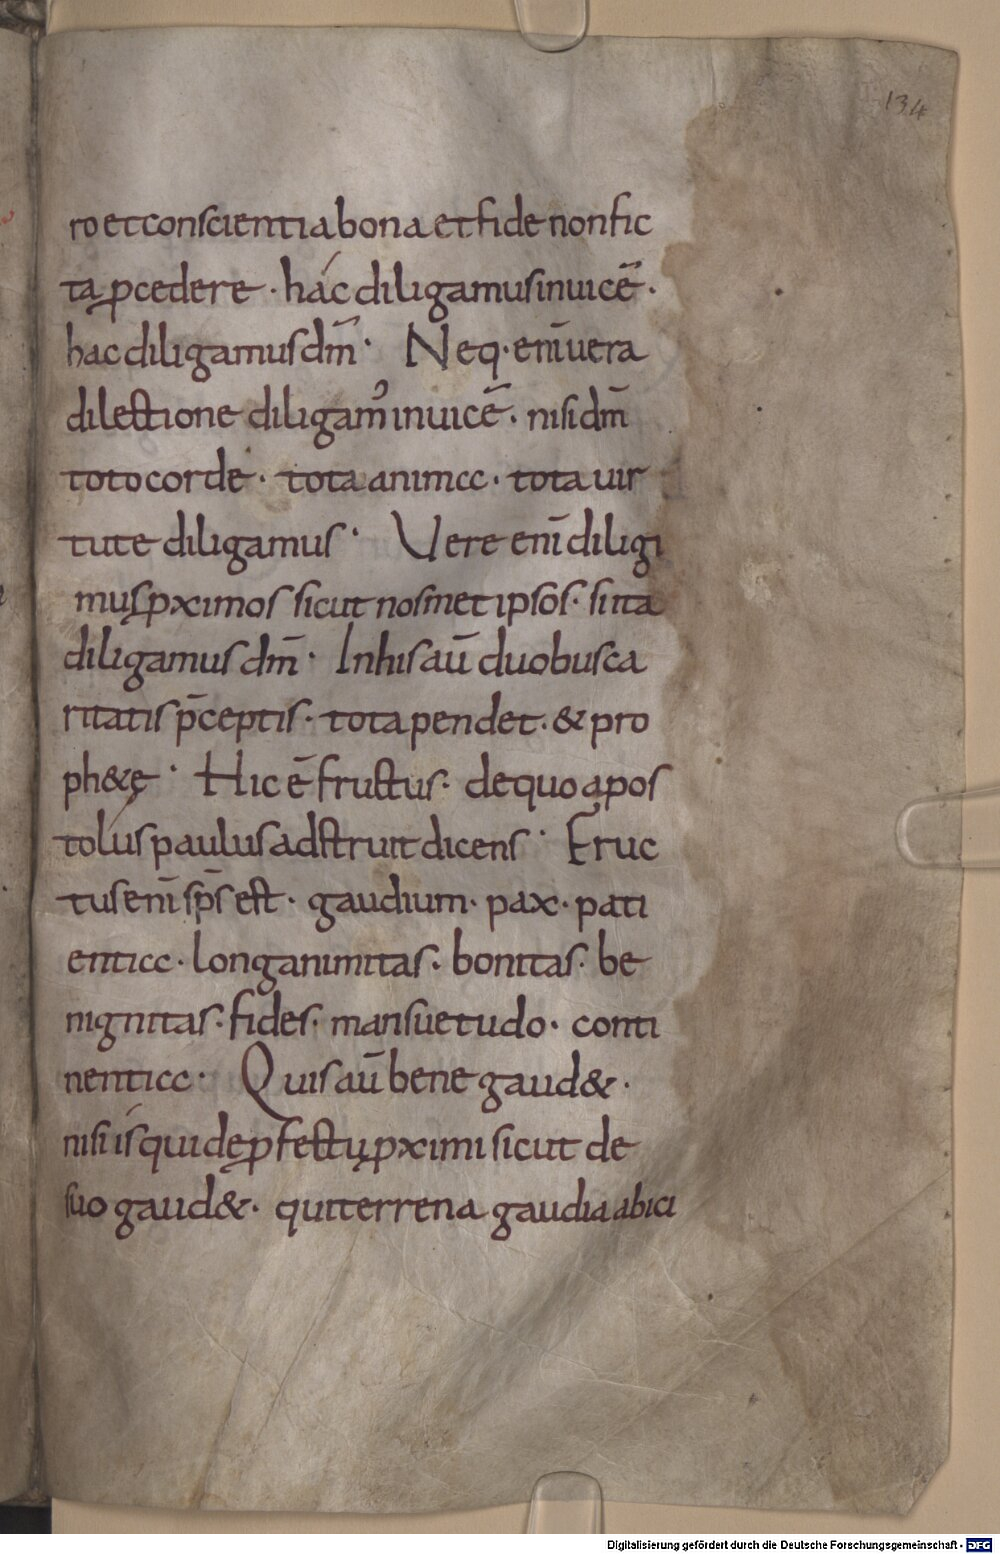 134
ro et conscientia bona et fide non fic
ta ꝓcedere · hac diligamus inuicē ·
hac diligamus dm̄ · Neq· eni̅ uera
dilectione diligamꝰ inuicē · nisi dm̄
toto corde · tota anima · tota uir
tute diligamus · Vere eni̅ diligi
mus ꝓximos sicut nosmet ipsos · si ita
diligamus dm̄ · In his au̅ duobus ca
ritatis p̄ceptis · tota pendet · & pro
ph&ę · Hic ē fructus · de quo apos
tolus paulus adstruit dicens · Fruc
tus eni̅ sp̄s est · gaudium · pax · pati
entia · longanimitas · bonitas · be
nignitas · fides · mansuetudo · conti
nentia · Quis au̅ bene gaud& ·
nisi is qui de ꝓfectu ꝓximi sicut de
suo gaud& · qui terrena gaudia abici
Digitalisierung gefördert durch die Deutsche Forschungsgemeinschaft - DFG